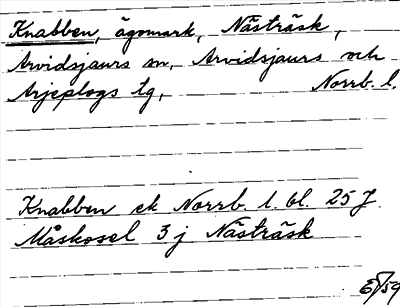 Knabben, ägomark, Nästräsk,
Arvidsjaurs sn, Arvidsjaurs och
Arjeplogs tg, Norrb. l.
Knabben ek Norrb. l. bl. 25 J
Måskosel 3 j Nästräsk
/59